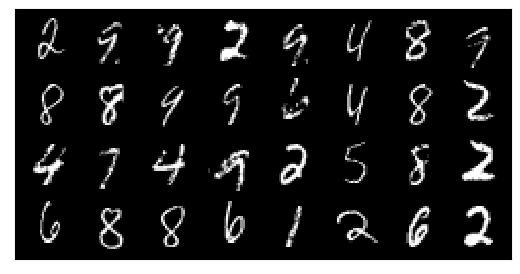 2 9 9 2 9 4 8 9
8 8 9 9 6 4 8 2
4 7 4 9 2 5 8 2
6 8 8 6 1 2 6 2